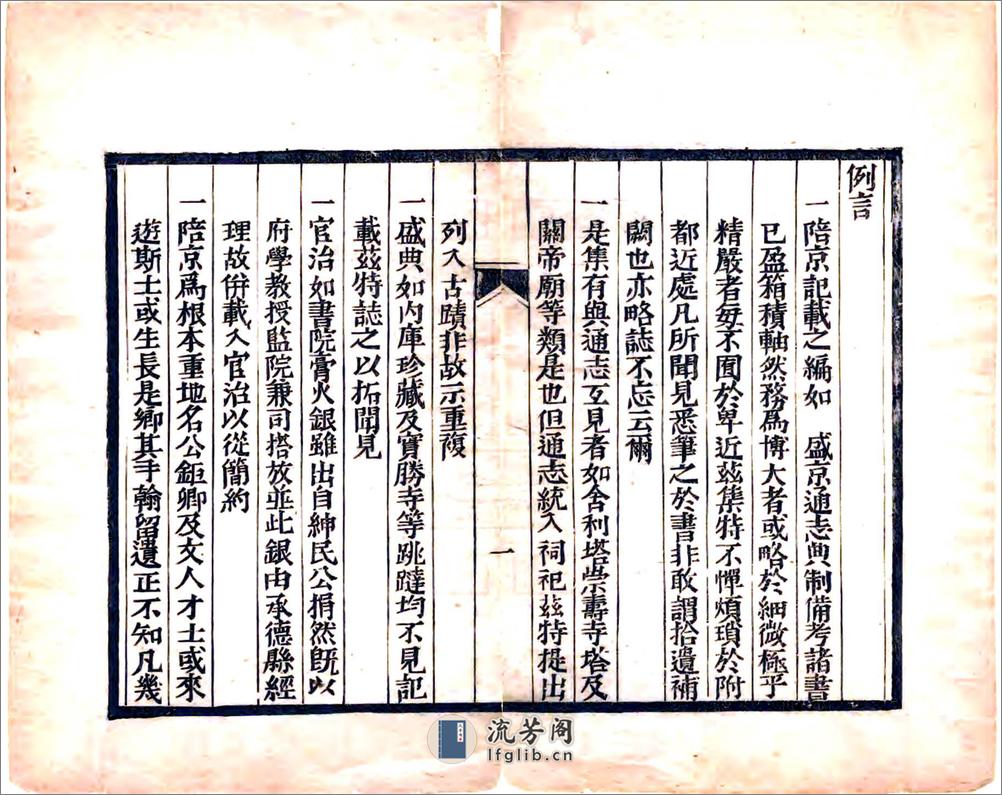 例言
一陪京記載之編如　盛京通志典制備考諸書
已盈箱積軸然務爲博大者或略於細微極乎
精嚴者每不囿於卑近茲集特不憚煩瑣於附
都近處凡所聞見悉筆之於書非敢謂拾遺補
闕也亦略誌不忘云爾
一是集有與通志互見者如舍利塔崇壽寺塔及
關帝廟等類是也但通志統入祠祀茲特提出
一
列入古蹟非故示重複
一盛典如內庫珍藏及實勝寺等跳躂均不見記
載茲特誌之以拓聞見
一官治如書院膏火銀雖出自紳民公捐然旣以
府學教授監院兼司搭放並此銀由承德縣經
理故併載入官治以從簡約
一陪京爲根本重地名公鉅卿及文人才士或來
遊斯土或生長是鄉其手翰留遺正不知凡幾
流芳阁
lfglib.cn